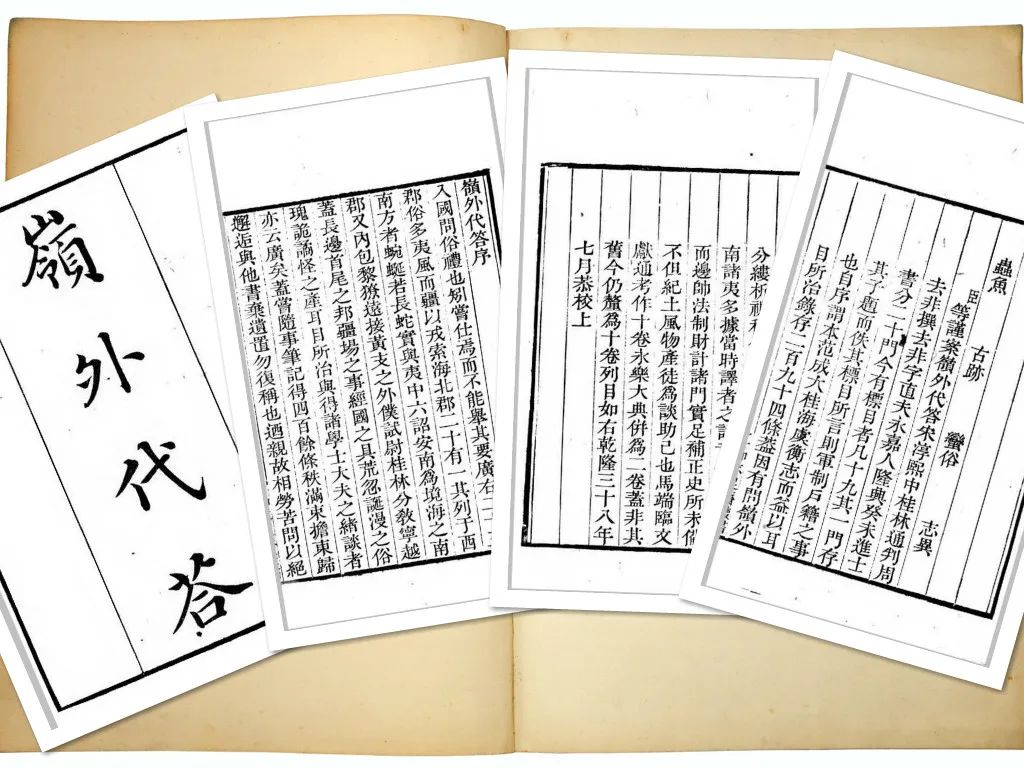 嶺外代答
嶺外代答序
入國問俗禮也矧嘗仕焉而不能舉其要廣右二
郡俗多夷風而疆以戎索海北郡二十有一其列于西
南方者蜿蜒若長蛇實與夷中六詔安南爲境海之南
郡又內包黎獠遠接黃支之外僕試尉桂林分教寧越
蓋長邊首尾之邦疆場之事經國之具荒忽誕漫之俗
瑰詭譎怪之產耳目所治與得諸學士大夫之緒談者
亦云廣矣蓋嘗隨事筆記得四百餘條秩滿束擔東歸
邂逅與他書棄遺置勿復稱也迺親故相勞苦問以絕
分縷析視
南諸夷多據當時譯者之
而邊帥法制財計諸門實足補正史所未備
不但紀土風物產徒爲談助已也馬端臨文
獻通考作十卷永樂大典併爲二卷蓋非其
舊今仍釐爲十卷列目如右乾隆三十八年
七月恭校上
蟲魚
古跡 蠻俗 志異
臣等謹案嶺外代答宋淳熙中桂林通判周
去非撰去非字直夫永嘉人隆興癸未進士
書分二十門今有標目者凡十九其一門存
其子題而佚其標目所言則軍制戶籍之事
也自序謂本范成大桂海虞衡志而益以耳
目所治錄存二百九十四條蓋因有問嶺外